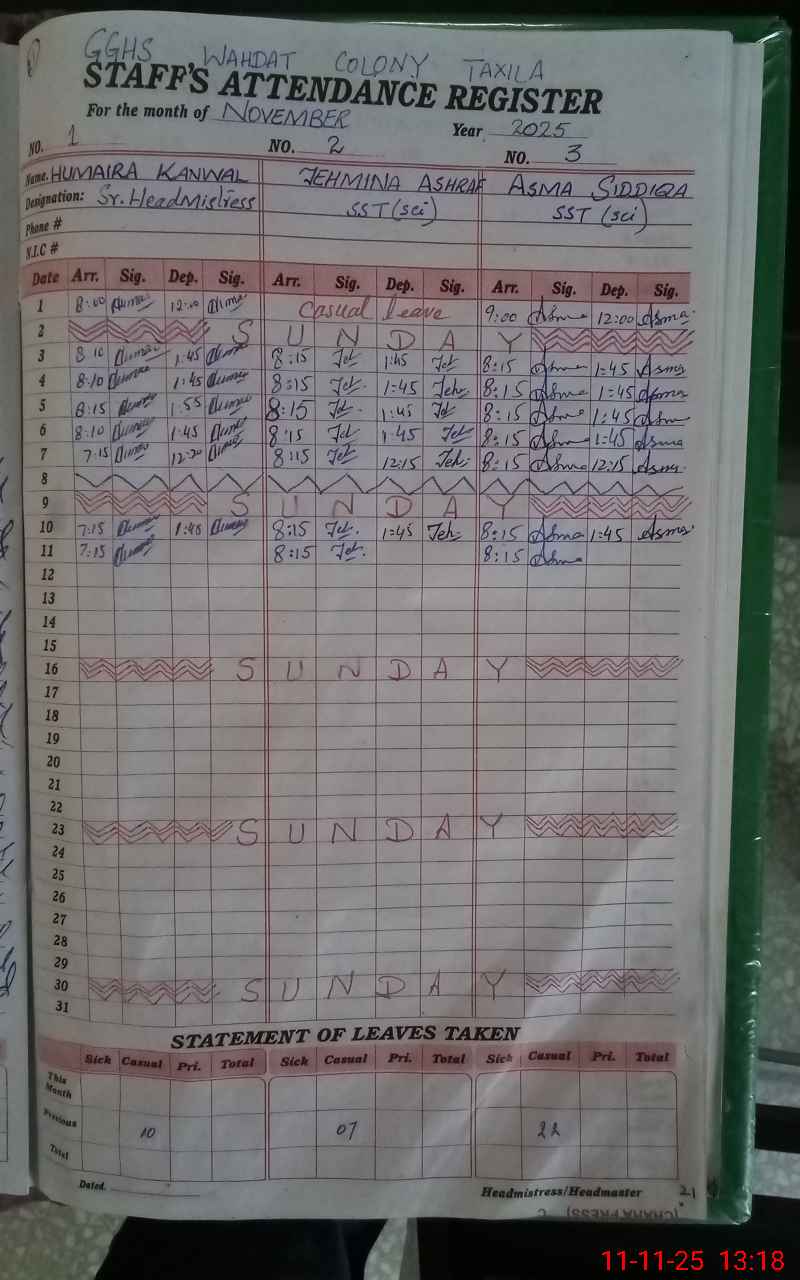 GGHS WAHDAT COLONY TAXILA
STAFF'S ATTENDANCE REGISTER
For the month of NOVEMBER
Year 2025
NO. 1 NO. 2 NO. 3
Name. HUMAIRA KANWAL TEHMINA ASHRAF ASMA SIDDIQA
Designation: Sr. HeadMistress SST (sci) SST (sci)
Phone #
N.I.C #
Date Arr. Sig. Dep. Sig. Arr. Sig. Dep. Sig. Arr. Sig. Dep. Sig.
1 8:00 12:00 Casual leave 9:00 Asma 12:00 Asma
2 S U N D A Y
3 8 10 1:45 8:15 Teh 1:45 Teh 8:15 Asma 1:45 Asma
4 8:10 1:45 8:15 Teh. 1:45 Teh. 8:15 Asma 1:45 Asma
5 8:15 1:55 8:15 Teh. 1:45 Teh 8:15 Asma 1:45 Asma
6 8:10 1:45 8:15 Teh 1:45 Teh 8:15 Asma 1:45 Asma
7 7:15 8:15 Teh 12:15 Teh. 8:15 Asma 12:15 Asma
8
9 S U N D A Y
10 7:15 8:15 Teh. 1:45 Teh. 8:15 Asma 1:45 Asma
11 7:15 8:15 Teh. 8:15 Asma
12
13
14
15
16 S U N D A Y
17
18
19
20
21
22
23 S U N D A Y
24
25
26
27
28
29
30 S U N D A Y
31
STATEMENT OF LEAVES TAKEN
Sick Casual Pri. Total Sick Casual Pri. Total Sick Casual Pri. Total
This Month
Previous 10 07 22
Total
Dated.
Headmistress/Headmaster 21
11-11-25 13:18